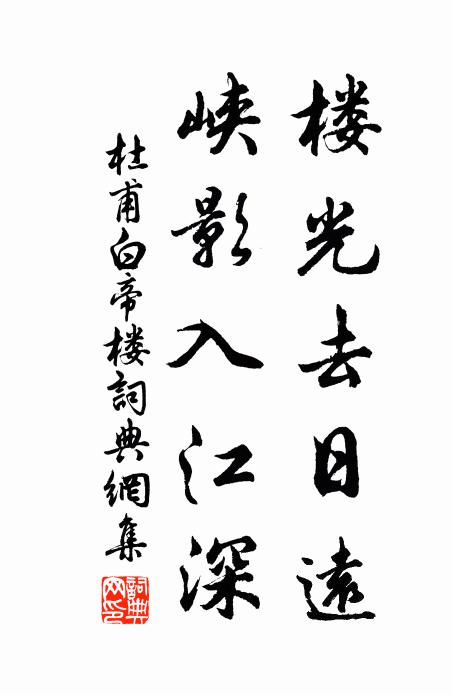 楼光去日遠
峡影入江深
杜甫白帝楼詞典網集
詞典網印